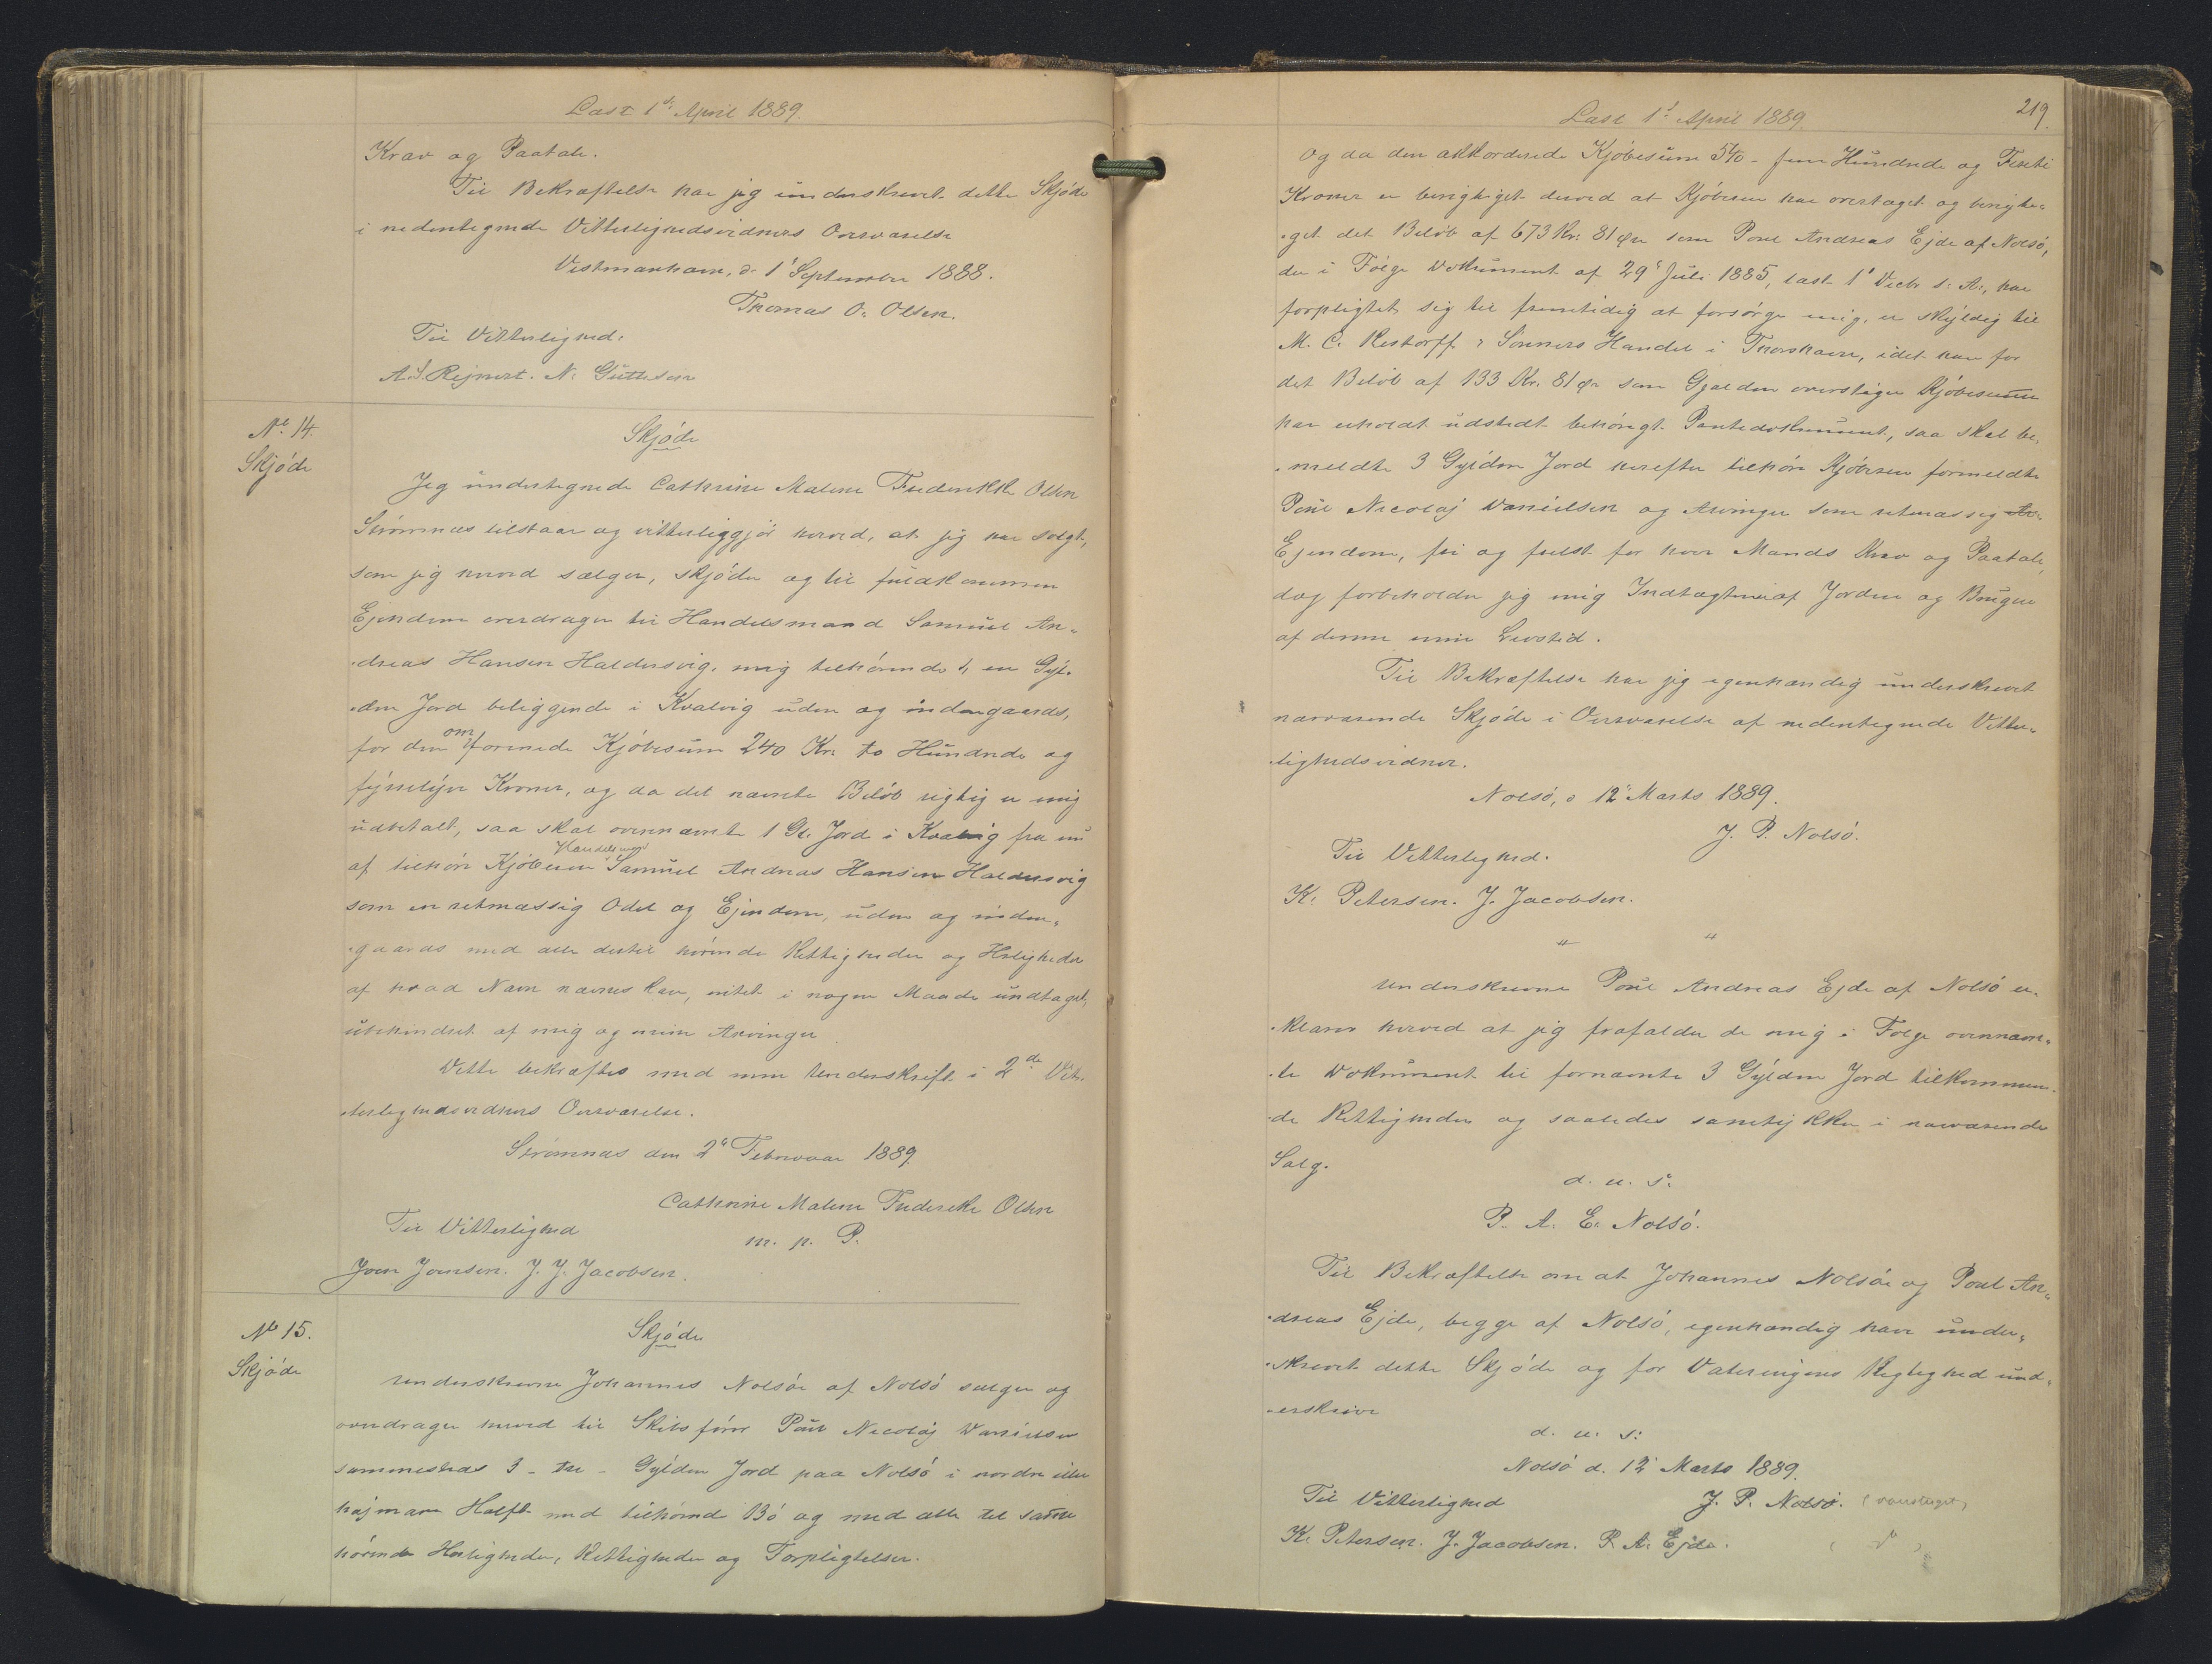 Læst 1ste April 1889.
Krav og Paatale.
Til Bekræftelse har jeg underskrevet dette Skjøde
i nedentegnede Vitterlighedsvidners Overværelse
Vestmanhavn, d. 1' September 1888.
Thomas O. Olsen.
Til Vitterlighed:
A. J. Rejnert. N. Guttesen
No. 14.
Skjøde
Skjøde
Jeg undertegnede Cathrine Malene Frederikke Olsen
Strømnæs tilstaar og vitterliggjør herved, at jeg har solgt,
som jeg herved sælger, skjøder og til fuldkommen
Ejendom overdrager til Handelsmand Samuel An-
dreas Hansen Haldersvig, mig tilhørende 1, en Gyl-
den Jord beliggende i Kvalvig uden og indengaards,
for den om
forenede Kjøbesum 240 Kr. to Hundrede og
fyrretyve Kroner, og da det nævnte Beløb rigtig er mig
udbetalt, saa skal ovennævnte 1 Gl. Jord i Kvalvig fra nu
Handelsmand
af tilhøre Kjøberen Samuel Andreas Hansen Haldersvig
som en retmæssig Odel og Ejendom, uden og inden-
gaards med alle dertil hørende Rettigheder og Herligheder
af hvad Navn nævnes kan, intet i nogen Maade undtaget,
uhindret af mig og mine Arvinger
Dette bekræftes med min Underskrift i 2de Vit-
terlighedsvidners Overværelse.
Strømnæs den 2' Februar 1889.
Cathrine Malene Frederikke Olsen
Til Vitterlighed
m. p. P.
Joen Joensen. J. J. Jacobsen.
No 15.
Skjøde
Skjøde
Underskrevne Johannes Nolsøe af Nolsø sælger og
overdrager herved til Skibsfører Poul Nicolaj Danielsen
sammesteds 3 - tre - Gylden Jord paa Nolsø i nordre eller
højmare Halft med tilhørende Bø og med alle til samme
hørende Herligheder, Rettigheder og Forpligtelser.
Læst 1' April 1889.
219.
Og da den akkorderede Kjøbesum 540 - fem Hundrede og Firti
Kroner er berigtiget derved at Kjøberen har overtaget og berigti-
get det Beløb af 673 Kr. 81 Øre som Poul Andreas Ejde af Nolsø,
der i Følge Dokument af 29' Juli 1885, læst 1' Decbr s. A., har
forpligtet sig til fremtidig at forsørge mig, er skyldig til
M. C. Restorff & Sønners Handel i Thorshavn, idet han for
det Beløb af 133 Kr. 81 Øre som Gjælden overstiger Kjøbesummen
har erholdt udstedt behørigt Pantedokument, saa skal be-
meldte 3 Gylden Jord herefter tilhøre Kjøberen formeldte
Poul Nicolaj Danielsen og Arvinger som retmæssig Ar-
Ejendom, fri og frelst for hver Mands Krav og Paatale,
dog forbeholder jeg mig Indtægterne af Jorden og Brugen
af denne min Levetid.
Til Bekræftelse har jeg egenhændig underskrevet
nærværende Skjøde i Overværelse af nedentegnede Vitter-
lighedsvidner.
Nolsø, d 12' Marts 1889.
J. P. Nolsø.
Til Vitterlighed.
K. Petersen. J. Jacobsen.
" "
Underskrevne Poul Andreas Ejde af Nolsø er-
klærer herved at jeg frafalder de mig i Følge ovennævn-
te Dokument til fornævnte 3 Gylden Jord tilkommen-
de Rettigheder og saaledes samtykker i nærværende
Salg.
d. u. s.
P. A. E. Nolsø.
Til Bekræftelse om at Johannes Nolsøe og Poul An-
dreas Ejde, begge af Nolsø, egenhændig have under-
skrevet dette Skjøde og for Dateringens Rigtighed und-
erskrive
d. u. s.
Nolsø d. 12' Marts 1889.
Til Vitterlighed
J. P. Nolsø. (overstreget)
K. Petersen. J. Jacobsen. P. A. Ejde.